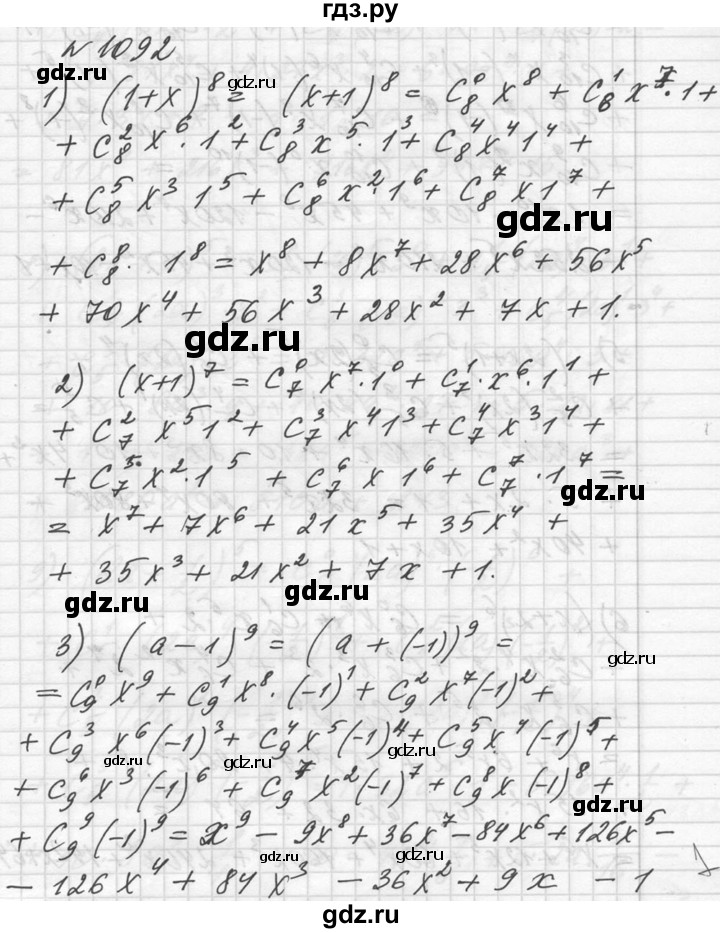 гдз.ру
№ 1092
1) (1+x)^8 = (x+1)^8 = C_8^0 x^8 + C_8^1 x^7·1 +
+ C_8^2 x^6·1^2 + C_8^3 x^5·1^3 + C_8^4 x^4 1^4 +
+ C_8^5 x^3 1^5 + C_8^6 x^2·1^6 + C_8^7 x 1^7 +
gdz.ru
+ C_8^8· 1^8 = x^8 + 8x^7 + 28x^6 + 56x^5
+ 70x^4 + 56x^3 + 28x^2 + 7x + 1.
gdz.ru
2) (x+1)^7 = C_7^0·x^7·1^0 + C_7^1·x^6·1^1 +
+ C_7^2 x^5 1^2 + C_7^3 x^4 1^3 + C_7^4 x^3 1^4 +
+ C_7^5 x^2·1^5 + C_7^6 x 1^6 + C_7^7·1^7 =
gdz.ru
= x^7 + 7x^6 + 21x^5 + 35x^4 +
+ 35x^3 + 21x^2 + 7x + 1.
gdz.ru
gdz.ru
3) (a-1)^9 = (a+(-1))^9 =
gdz.ru
= C_9^0 x^9 + C_9^1 x^8·(-1)^1 + C_9^2 x^7 (-1)^2 +
+ C_9^3 x^6 (-1)^3 + C_9^4 x^5 (-1)^4 + C_9^5 x^4 (-1)^5 +
gdz.ru
gdz.ru
+ C_9^6 x^3 (-1)^6 + C_9^7 x^2 (-1)^7 + C_9^8 x (-1)^8 +
gdz.ru
+ C_9^9 (-1)^9 = x^9 - 9x^8 + 36x^7 - 84x^6 + 126x^5 -
gdz.ru
gdz.ru
- 126x^4 + 84x^3 - 36x^2 + 9x - 1
gdz.ru
gdz.ru